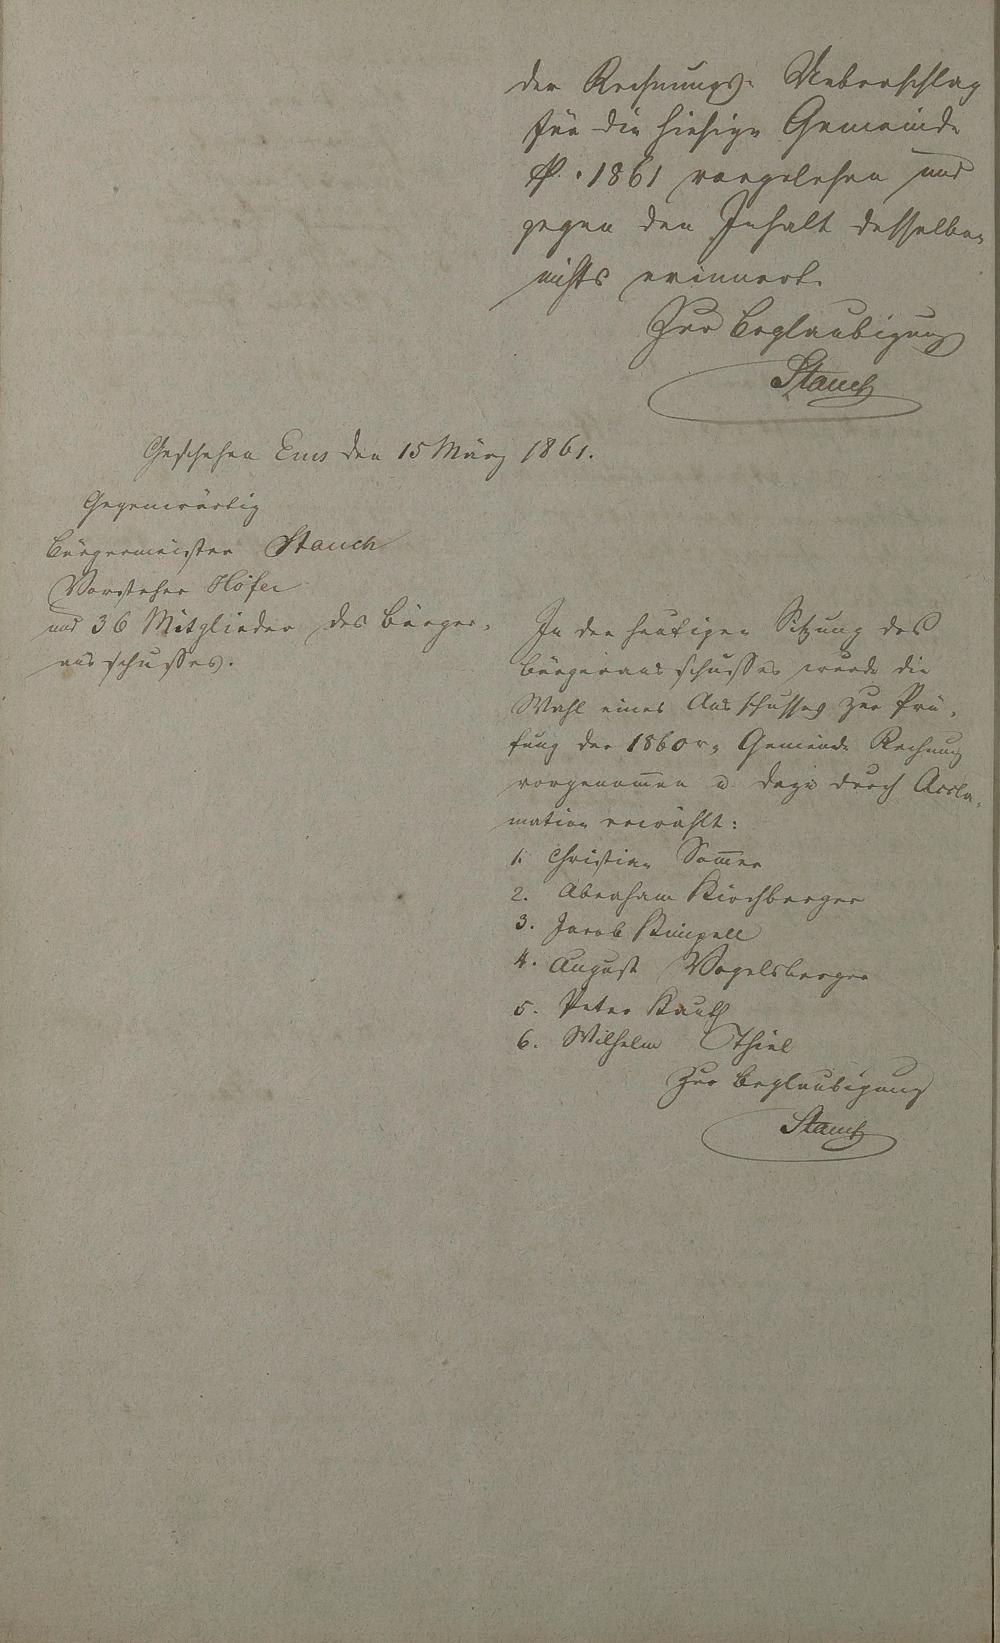 der Rechnungs-Ueberschlag
für die hiesige Gemeinde
p. 1861 vorgelesen und
gegen den Inhalt desselben
nichts erinnert.
Zur Beglaubigung
Stauch
Geschehen Ems den 15 März 1861.
Gegenwärtig
Bürgermeister Stauch
Vorsteher Höfer
und 36 Mitglieder des Bürger-
ausschusses.
In der heutigen Sitzung des
Bürgerausschusses wurde die
Wahl eines Ausschusses zur Prü-
fung der 1860r Gemeinde Rechnung
vorgenom̅en u. dazu durch Accla-
mation erwählt:
1. Christian Som̅er
2. Abraham Kirchberger
3. Jacob
4. August Vogelsberger
5. Peter Kauth
6. Wilhelm Thiel
Zur Beglaubigung
Stauch